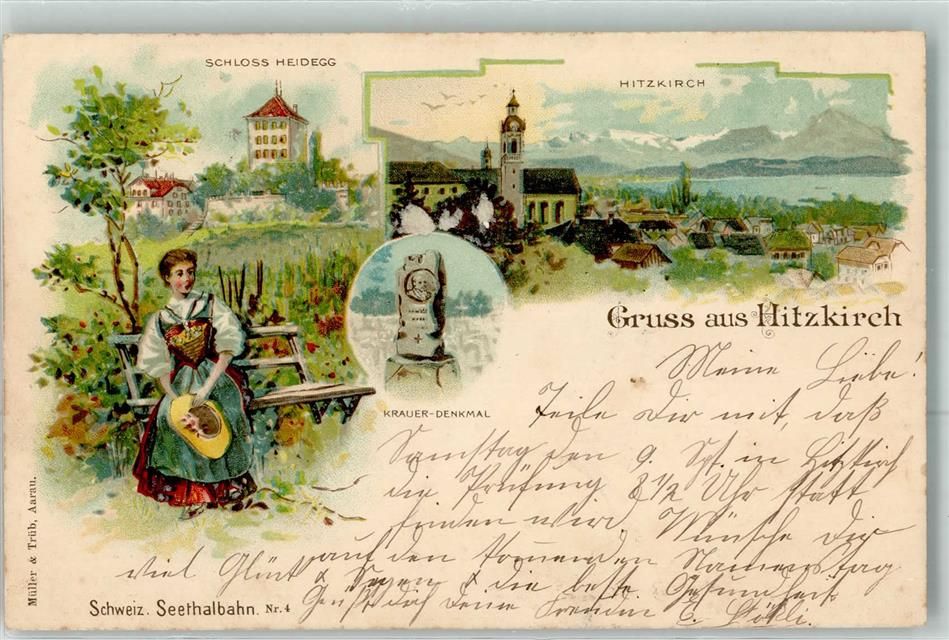 SCHLOSS HEIDEGG
HITZKIRCH
KRAUER-DENKMAL
Gruss aus Hitzkirch
Meine Liebe!
Teile Dir mit, daß
Samstag den 9. Spt. in Hitzkirch
die Prüfung 8 1/2 Uhr statt
finden wird. Wünsche Dir
auf den kommenden Namenstag
viel Glück & Segen & die beste Gesundheit
Grüßt dich Deine Freundin E.
Müller & Trüb, Aarau.
Schweiz. Seethalbahn. Nr. 4